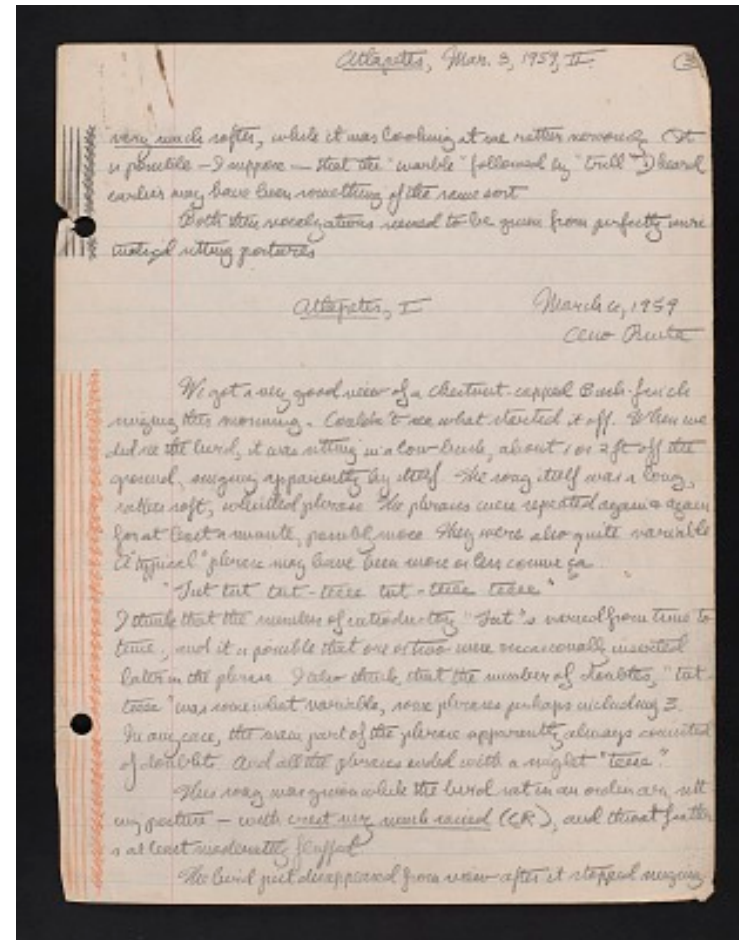 Atlapetes, Mar. 3, 1959, II.
3
very much softer, while it was looking at me rather nervously. (It
is possible - I suppose - that the "warble" followed by "trill" I heard
earlier may have been something of the same sort
Both these vocalizations seemed to be given from perfectly
sitting postures
Atlapetes, I
March 6, 1959
Cerro Punta
We got a very good view of a chestnut-capped Bush-finch
singing this morning. Couldn't see what started it off. When we
did see the bird, it was sitting in a low bush, about 1 or 2 ft off the
ground, singing apparently by itself. The song itself was a long,
rather soft, whistled phrase. The phrases were repeated again & again
for at least a minute, possibly more. They were also quite variable
A "typical" phrase may have been more or less comme ça.
"Tut tut tut-teeee tut-teeee teeee"
I think that the number of introductory "Tut"s varied from time to
time, and it is possible that one or two were occasionally inserted
later in the phrase. I also think that the number of doublets, "tut-
teeee" was somewhat variable, some phrases perhaps including 3.
In any case, the main part of the phrase apparently always consisted
of doublets. And all the phrases ended with a single "teeee".
This song was given while the bird sat in an ordinary sitt
ing posture - with crest very much raised (CR), and throat feather
s at least moderately fluffed.
The bird just disappeared from view after it stopped singing